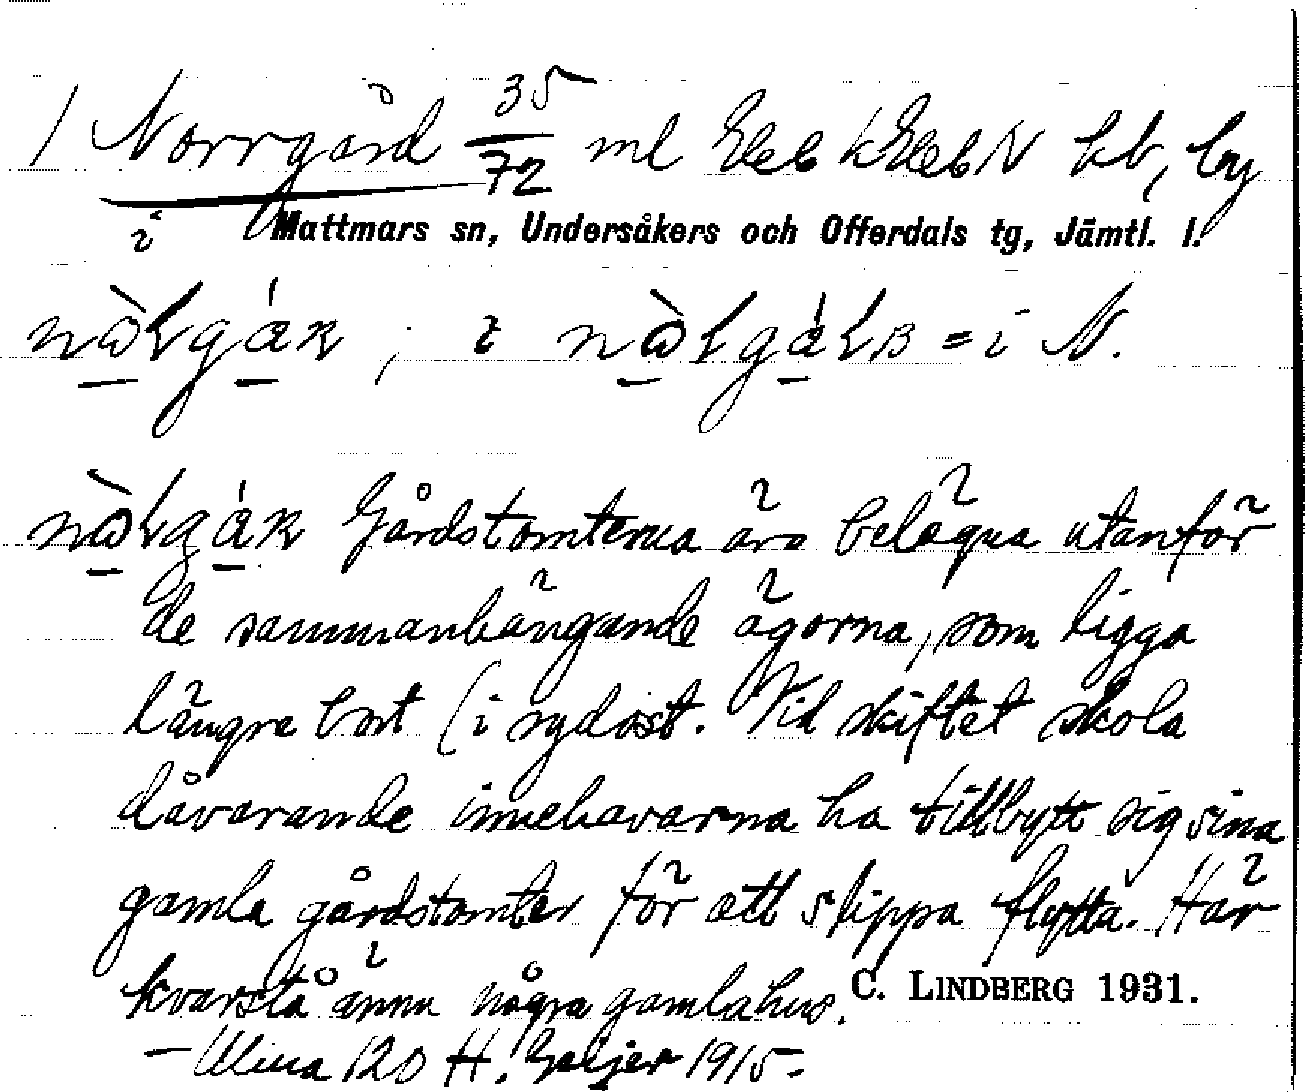 1 Norrgård 35/72 ml Ekeb kEkebN hb, by
i Mattmars sn, Undersåkers och Offerdals tg, Jämtl. l.
i = i N.
Gårdstomterna äro belägna utanför
de sammanhängande ägorna, som ligga
längre bort (i sydost. Vid skiftet skola
dåvarande innehavarna ha tillbytt sig sina
gamla gårdstomter för att slippa flytta. Här
kvarstå ännu några gamla hus. C. LINDBERG 1931.
120 H. Geijer 1915